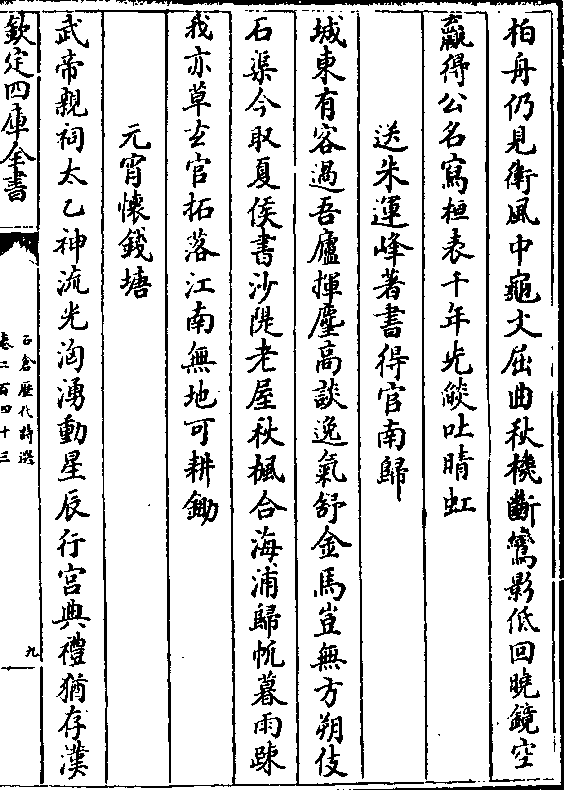 柏舟仍見衛風中龜文屈曲秋機斷鸞影低回曉鏡空
贏得公名寫桓表千年光燄吐晴虹
送朱運峰著書得官南歸
城東有客過吾廬揮麈高談逸氣舒金馬豈無方朔伎
石渠今取夏侯書沙隄老屋秋楓合海浦歸帆暮雨疎
我亦草玄官拓落江南無地可耕鋤
元宵懷錢塘
武帝親祠太乙神流光洶湧動星辰行宮典禮猶存漢
欽定四庫全書
石倉歷代詩選
卷二百四十三
九